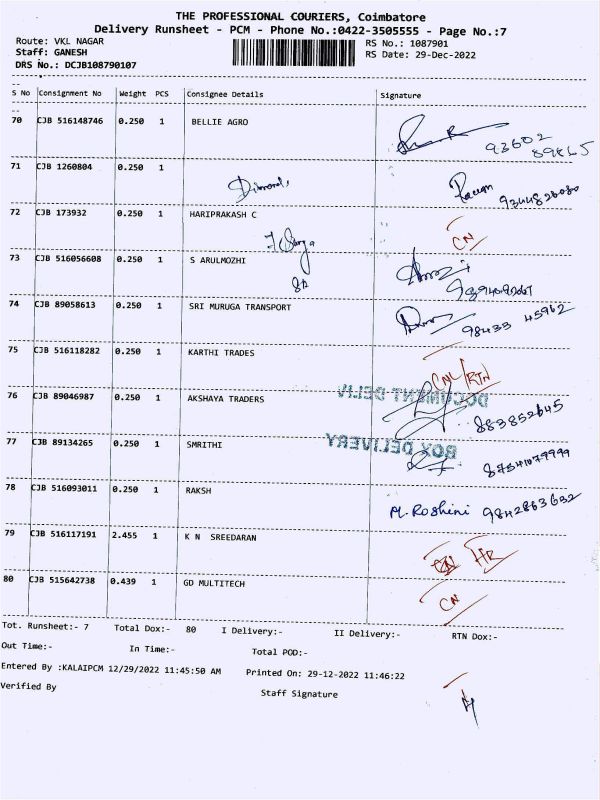 THE PROFESSIONAL COURIERS, Coimbatore
Delivery Runsheet - PCM - Phone No.:0422-3505555 - Page No.:7
Route: VKL NAGAR RS No.: 1087901
Staff: GANESH RS Date: 29-Dec-2022
DRS No.: DCJB108790107
S No Consignment No Weight PCS Consignee Details Signature
70 CJB 516148746 0.250 1 BELLIE AGRO
93602
89865
71 CJB 1260804 0.250 1
9344826080
72 CJB 173932 0.250 1 HARIPRAKASH C
CN
73 CJB 516056608 0.250 1 S ARULMOZHI
74 CJB 89058613 0.250 1 SRI MURUGA TRANSPORT
98433 45962
75 CJB 516118282 0.250 1 KARTHI TRADES
CNL/RTN
76 CJB 89046987 0.250 1 AKSHAYA TRADERS
DOCUMENT DELIV
883852645
77 CJB 89134265 0.250 1 SMRITHI
BOX DELIVERY
78 CJB 516093011 0.250 1 RAKSH
M. Roshini 9842863632
79 CJB 516117191 2.455 1 K N SREEDARAN
CN HR
80 CJB 515642738 0.439 1 GD MULTITECH
CN
Tot. Runsheet:- 7 Total Dox:- 80 I Delivery:- II Delivery:- RTN Dox:-
Out Time:- In Time:- Total POD:-
Entered By :KALAIPCM 12/29/2022 11:45:50 AM Printed On: 29-12-2022 11:46:22
Verified By Staff Signature